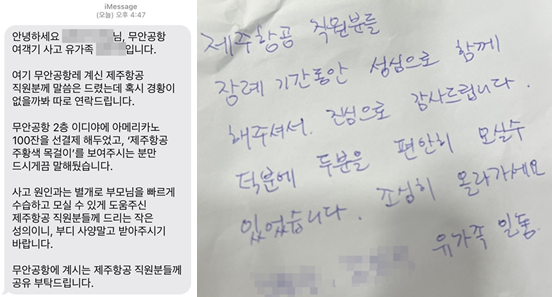 iMessage
(오늘) 오후 4:47
안녕하세요 님, 무안공항
여객기 사고 유가족 입니다.
여기 무안공항레 계신 제주항공
직원분께 말씀은 드렸는데 혹시 경황이
없을까봐 따로 연락드립니다.
무안공항 2층 이디야에 아메리카노
100잔을 선결제 해두었고, ‘제주항공
주황색 목걸이’를 보여주시는 분만
드시게끔 말해뒀습니다.
사고 원인과는 별개로 부모님을 빠르게
수습하고 모실 수 있게 도움주신
제주항공 직원분들께 드리는 작은
성의이니, 부디 사양말고 받아주시기
바랍니다.
무안공항에 계시는 제주항공 직원분들께
공유 부탁드립니다.
제주항공 직원분들
장례 기간동안 성심으로 함께
해주셔서. 진심으로 감사드립니다.
덕분에 두분을 편안히 모실수
있었습니다. 조심히 올라가세요
유가족 일동